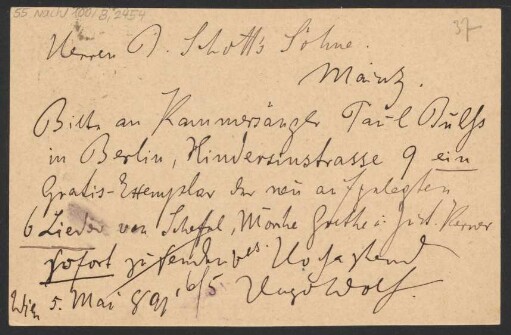 55 Nachl 100/B, 2454
37
Herren B. Schott's Söhne.
Mainz.
Bitte an Kammersänger Paul Bulß
in Berlin, Hindersinstrasse 9 ein
Gratis-Exemplar der neu aufgelegten
6 Lieder von Scheffel, Mörike Goethe u. Just. Kerner
sofort zu senden.
Hugo Wolf.
Wien 5. Mai 891 6/5